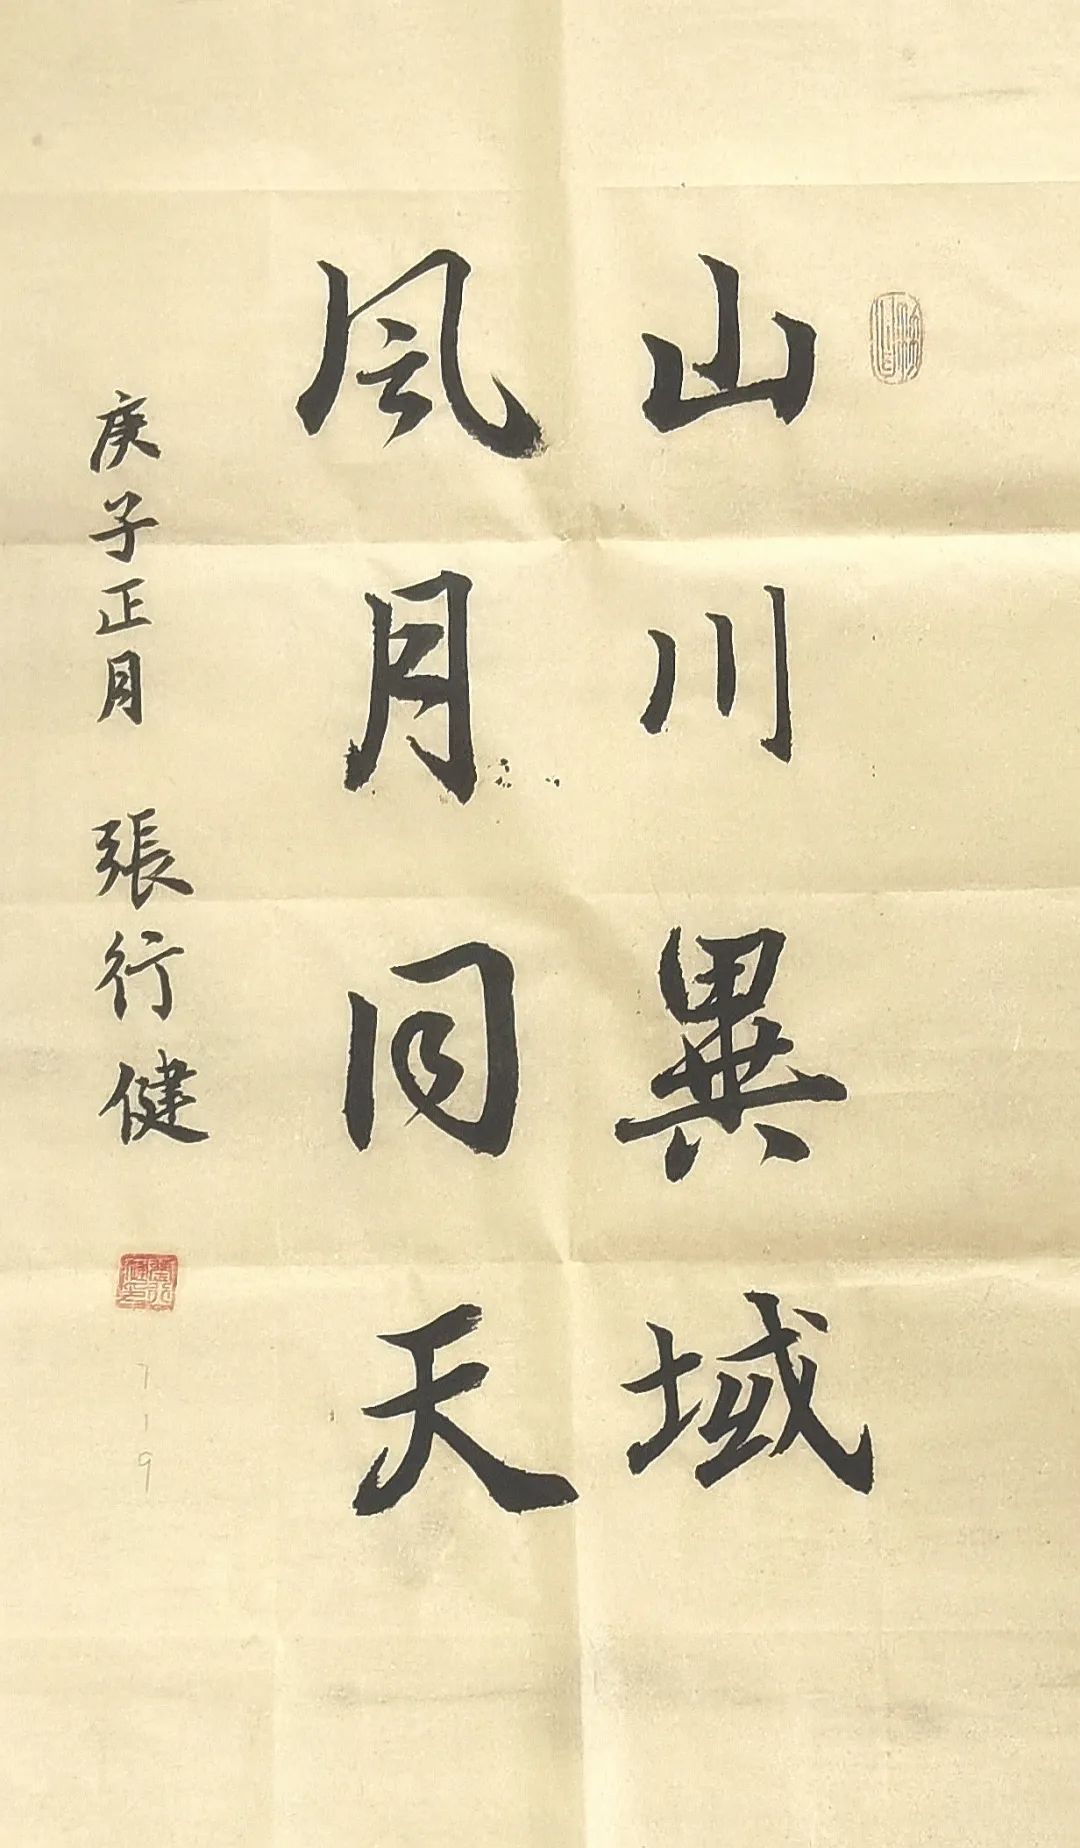 山川異域
风月同天
庚子正月 張行健
719